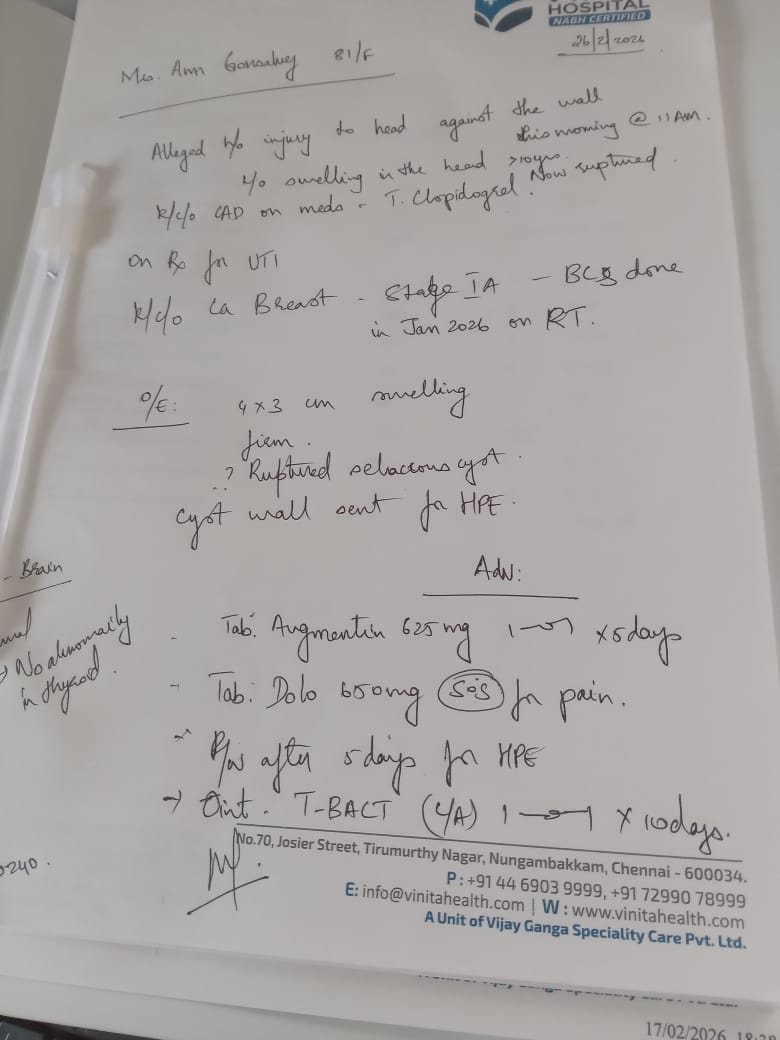 HOSPITAL
NABH CERTIFIED
26/2/2026
Mrs. Ann Gonsalvez 81/F
Alleged h/o injury to head against the wall
this morning @ 11 AM.
h/o swelling in the head >10yrs. Now ruptured.
k/c/o CAD on meds - T. Clopidogrel.
On Rx for UTI
k/c/o Ca Breast - Stage IA - BCS done
in Jan 2026 on RT.
O/E: 4 x 3 cm swelling
firm.
? Ruptured sebaceous cyst.
cyst wall sent for HPE.
- Brain
No abnormality
in thyroid.
Adv:
- Tab. Augmentin 625 mg 1-0-1 x 5 days
- Tab. Dolo 650mg SOS for pain.
R/w after 5 days for HPE
→ Oint. T-BACT (L/A) 1-0-1 x 10 days.
0240.
No.70, Josier Street, Tirumurthy Nagar, Nungambakkam, Chennai - 600034.
P : +91 44 6903 9999, +91 72990 78999
E: info@vinitahealth.com | W : www.vinitahealth.com
A Unit of Vijay Ganga Speciality Care Pvt. Ltd.
17/02/2026